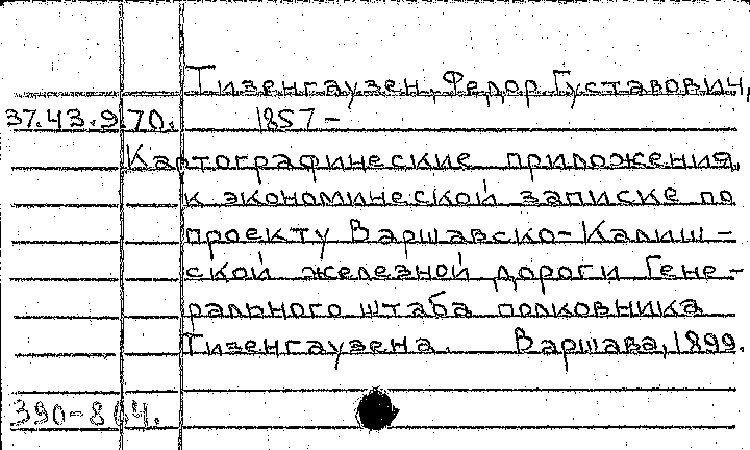 Тизенгаузен, Федор Густавович,
37.43.9.70. 1857-
Картографические приложения,
к экономической записке по
проекту Варшавско-Калиш-
ской железной дороги Гене-
рального штаба полковника
Тизенгаузена. Варшава, 1899.
390-864.